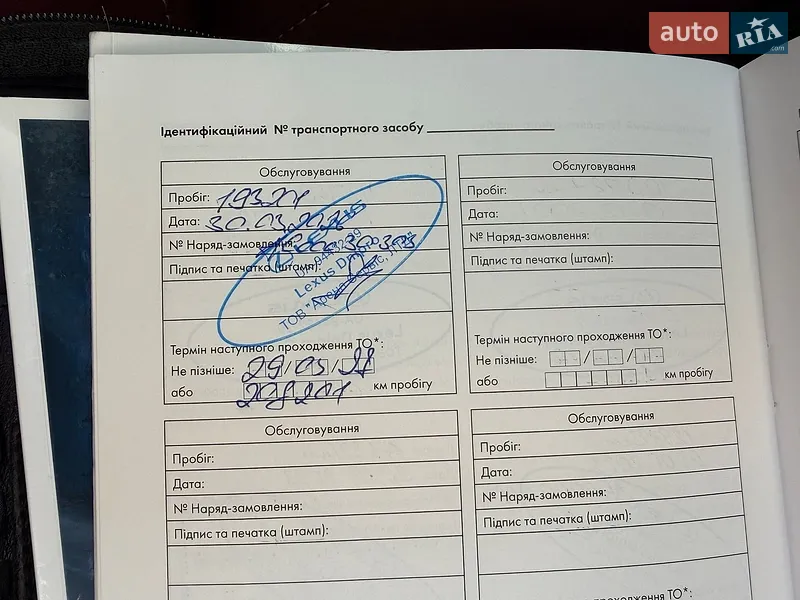 auto RIA .com
Ідентифікаційний № транспортного засобу
Обслуговування
Пробіг:
Дата: 30.03.
№ Наряд-замовлення:
Підпис та печатка (штамп):
LEXUS
Lexus Dnipro
ТОВ "Арена Сервіс
Термін наступного проходження ТО*:
Не пізніше: 29/03/
або км пробігу
Обслуговування
Пробіг:
Дата:
№ Наряд-замовлення:
Підпис та печатка (штамп):
Термін наступного проходження ТО*:
Не пізніше: / /
або км пробігу
Обслуговування
Пробіг:
Дата:
№ Наряд-замовлення:
Підпис та печатка (штамп):
Обслуговування
Пробіг:
Дата:
№ Наряд-замовлення:
Підпис та печатка (штамп):
проходження ТО*: